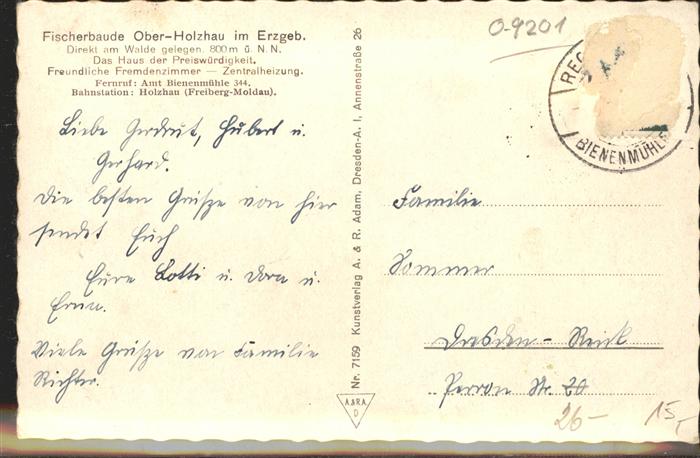 Fischerbaude Ober-Holzhau im Erzgeb.
Direkt am Walde gelegen. 800 m ü. N. N.
Das Haus der Preiswürdigkeit.
Freundliche Fremdenzimmer — Zentralheizung.
Fernruf: Amt Bienenmühle 344.
Bahnstation: Holzhau (Freiberg-Moldau).
Liebe Gerdrut, Hubert u.
Gerhard.
Die besten Grüsze von hier
sendet Euch
Eure Lotti u. Dora u.
Erna.
Viele Grüsze von Familie
Richter.
Nr. 7159 Kunstverlag A. & R. Adam, Dresden-A. I, Annenstraße 26
A.&R.A.
D
0-9201
BIENENMÜHLE
Familie
Sommer
Dresden - Reick
Perron Str. 20
26-
15,-